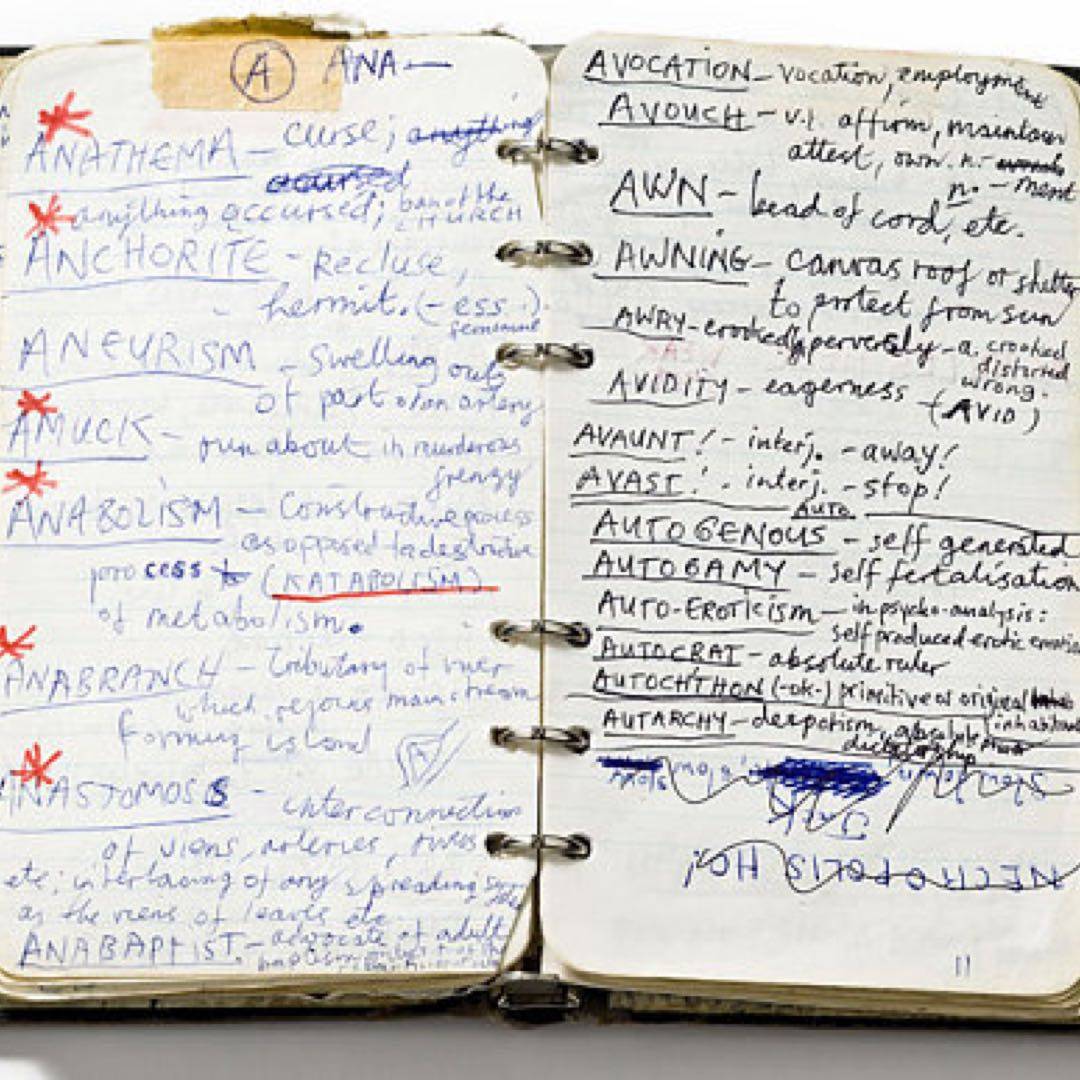 A ANA—
ANATHEMA — curse; anything
accursed
anything accursed; ban of the
CHURCH
ANCHORITE - recluse,
hermit. (-ess.).
feminine
ANEURISM - Swelling out
of part of an artery
AMUCK - run about in murderous
frenzy
ANABOLISM — Constructive process
as opposed to destructive
process (KATABOLISM)
of metabolism.
ANABRANCH - tributary of river
which rejoins main stream
forming island
A
ANASTOMOSIS - interconnection
of viens, arteries, rivers
etc; interlacing of any spreading
as the viens of leaves etc.
ANABAPTIST. - advocate of adult
baptism
AVOCATION - vocation, employment
AVOUCH - v.t. affirm, maintain
attest, own. n.-
n. - ment
AWN - bead of cord, etc.
AWNING - canvas roof or shelter
to protect from sun
AWRY - crookedly, perversly - a. crooked
distorted
wrong.
AVIDITY - eagerness (AVID)
AVAUNT! - interj. - away!
AVAST! - interj. - stop!
AUTO
AUTOGENOUS - self generated
AUTOGAMY - self fertalisation
AUTO-EROTICISM - in psycho-analysis:
self produced erotic emotion
AUTOCRAT - absolute ruler
AUTOCHTHON (-ok-) primitive or original
inhabitant
AUTARCHY - despotism, absolute
dictatorship.
JACK
NECROPOLIS HO!
11